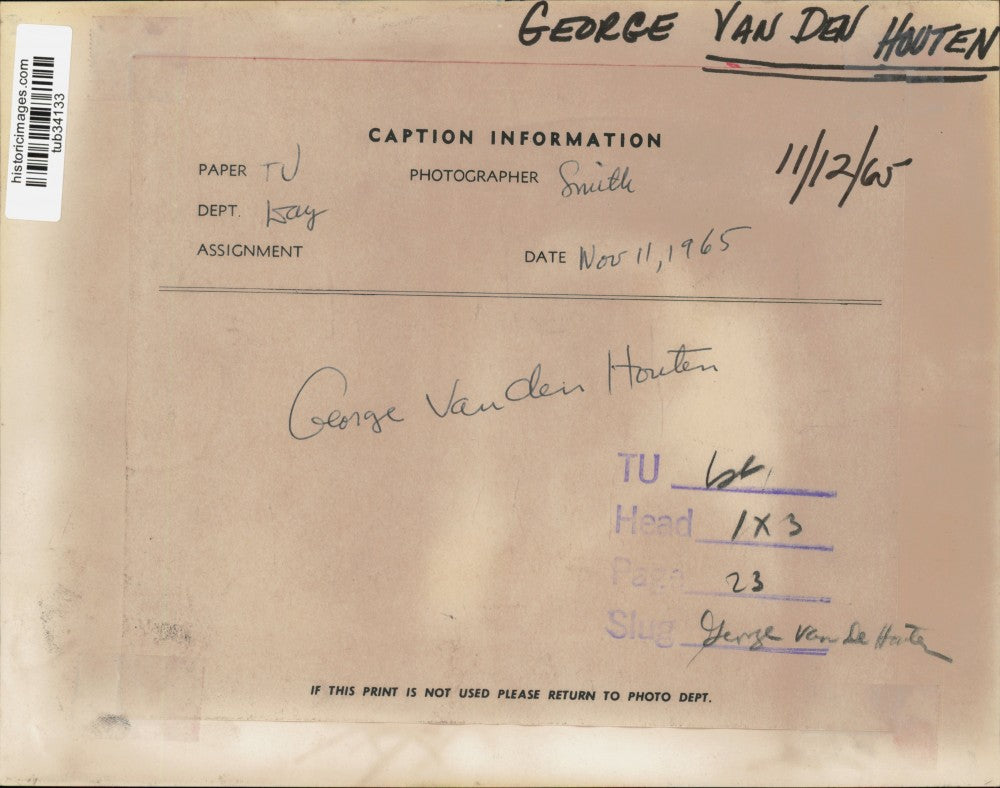 GEORGE VAN DEN HOUTEN
historicimages.com
tub34133
CAPTION INFORMATION
11/12/65
PAPER TU PHOTOGRAPHER Smith
DEPT. Day
ASSIGNMENT DATE Nov 11, 1965
George Van den Houten
TU
Head 1 X 3
Page 23
Slug George Van De Houten
IF THIS PRINT IS NOT USED PLEASE RETURN TO PHOTO DEPT.